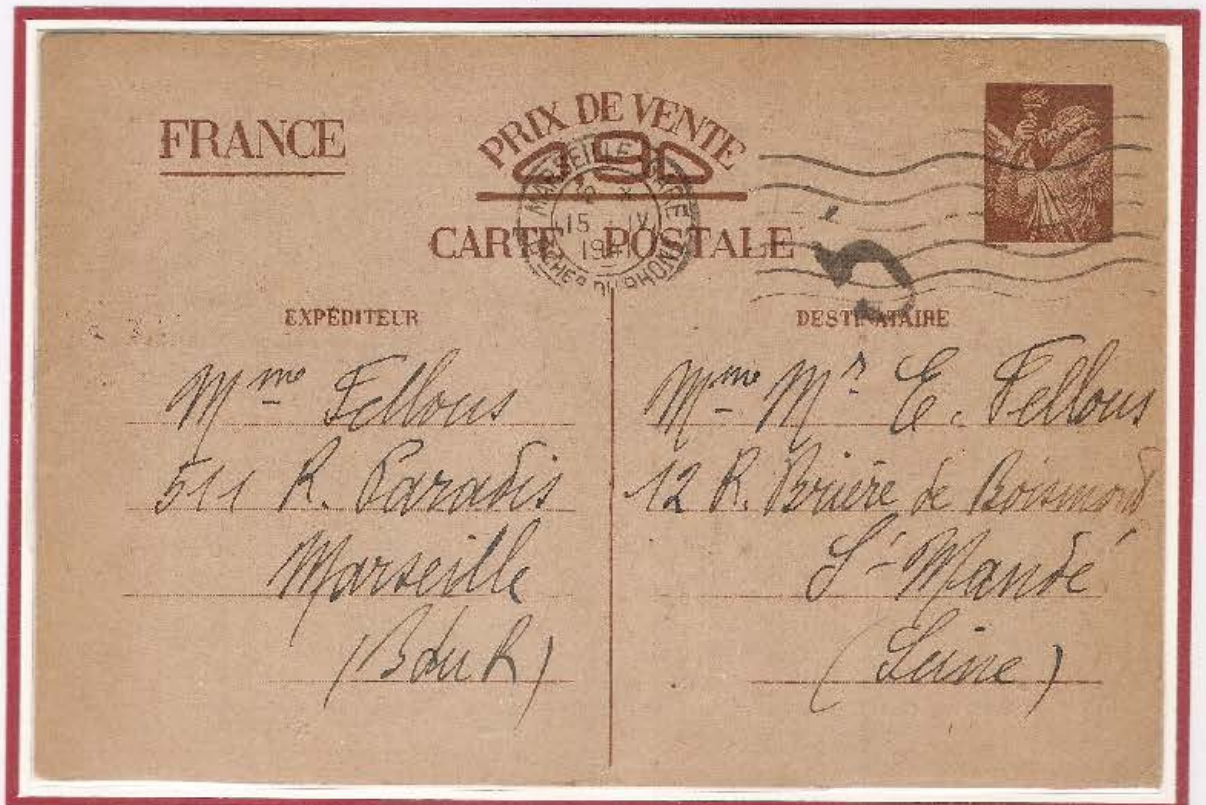 FRANCE
PRIX DE VENTE
0,90
CARTE POSTALE
MARSEILLE GARE
15 IV
1941
BOUCHES DU RHONE
EXPÉDITEUR
Mme Fellous
511 R. Paradis
Marseille
(B du R)
DESTINATAIRE
Mme Mr E. Fellous
12 R. Brière de Boismont
St Mandé
(Seine)